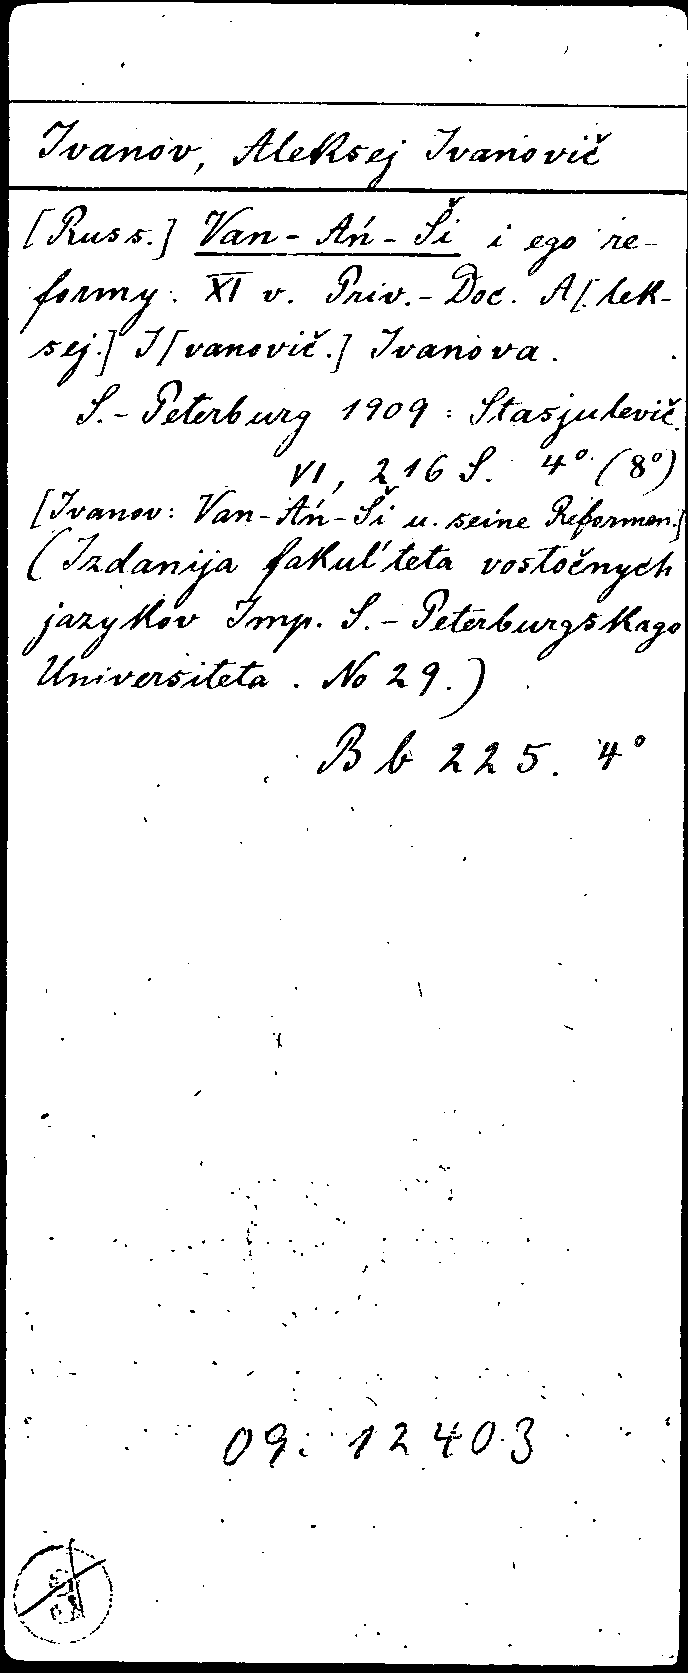 Ivanov, Aleksej Ivanovič
[Russ.] Van-Ań-Ši i ego re-
formy. XI v. Priv.-Doc. A[lek-
sej.] I[vanovič.] Ivanova.
S.-Peterburg 1909: Stasjulevič.
VI, 216 S. 4° (8°)
[Ivanov: Van-Ań-Ši u. seine Reformen.]
(Izdanija fakul'teta vostočnych
jazykov Imp. S.-Peterburgskago
Universiteta. No 29.)
Bb 225. 4°
09. 12403